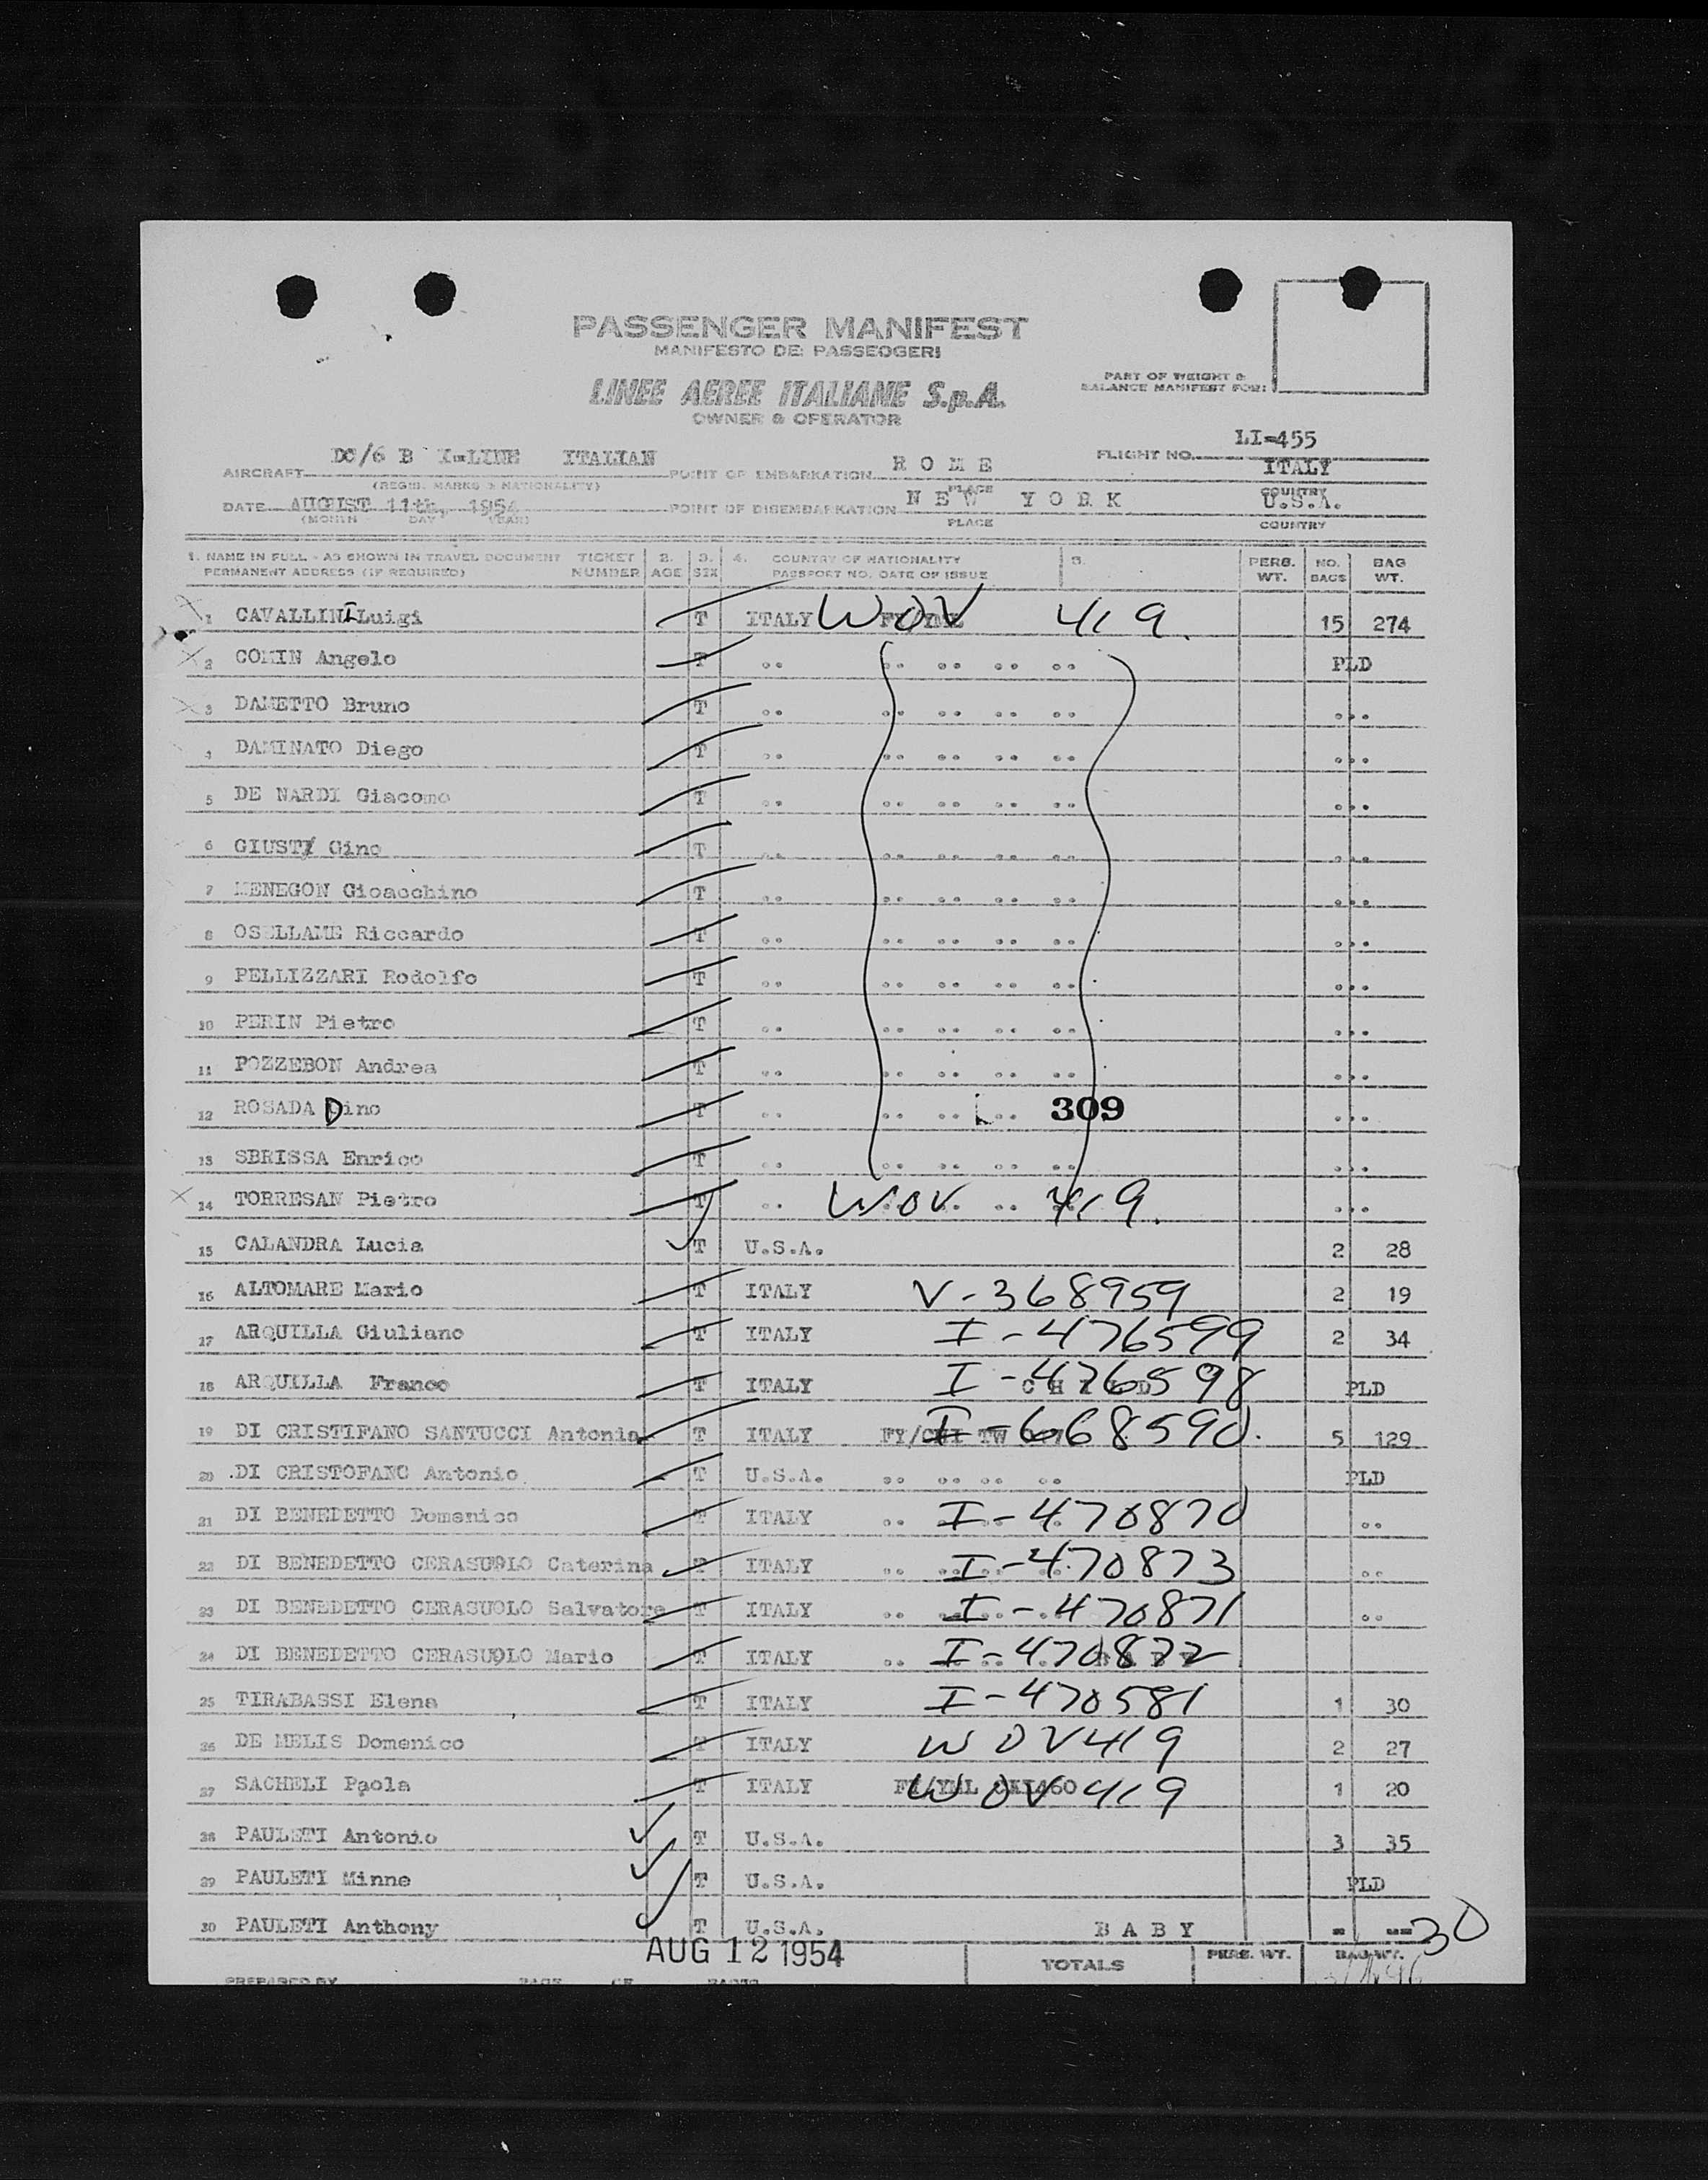 PASSENGER MANIFEST
MANIFESTO DEI PASSEGGERI
LINEE AEREE ITALIANE S.p.A.
OWNER & OPERATOR
PART OF WEIGHT &
BALANCE MANIFEST FOR:
AIRCRAFT DC/6 B I-LINE ITALIAN POINT OF EMBARKATION R O M E FLIGHT NO. LI-455
ITALY
(REGIS. MARKS & NATIONALITY) PLACE COUNTRY
DATE AUGUST 11th, 1954 POINT OF DISEMBARKATION N E W Y O R K U.S.A.
(MONTH DAY YEAR) PLACE COUNTRY
1. NAME IN FULL - AS SHOWN IN TRAVEL DOCUMENT TICKET 2. 3. 4. COUNTRY OF NATIONALITY 5. PERS. NO. BAG
PERMANENT ADDRESS (IF REQUIRED) NUMBER AGE SEX PASSPORT NO. DATE OF ISSUE WT. BAGS WT.
1 CAVALLINI Luigi T ITALY WOV 419. 15 274
2 COMIN Angelo T .. .. .. .. .. PLD
3 DAMETTO Bruno T .. .. .. .. .. ...
4 DAMINATO Diego T .. .. .. .. .. ...
5 DE NARDI Giacomo T .. .. .. .. .. ...
6 GIUSTI Gino T .. .. .. .. .. ...
7 MENEGON Gioacchino T .. .. .. .. .. ...
8 OSELLAME Riccardo T .. .. .. .. .. ...
9 PELLIZZARI Rodolfo T .. .. .. .. .. ...
10 PERIN Pietro T .. .. .. .. .. ...
11 POZZEBON Andrea T .. .. .. .. .. ...
12 ROSADA Dino T .. .. .. .. 309 ...
13 SBRISSA Enrico T .. .. .. .. .. ...
14 TORRESAN Pietro T .. WOV. .. 419. ...
15 CALANDRA Lucia T U.S.A. 2 28
16 ALTOMARE Mario T ITALY V-368959 2 19
17 ARQUILLA Giuliano T ITALY I-476599 2 34
18 ARQUILLA Franco T ITALY C H I L D I-476598 PLD
19 DI CRISTIFANO SANTUCCI Antonia T ITALY FY/CHI TW I-668590. 5 129
20 .DI CRISTOFANO Antonio T U.S.A. .. .. .. .. PLD
21 DI BENEDETTO Domenico T ITALY .. I-470870 ..
22 DI BENEDETTO CERASUOLO Caterina T ITALY .. I-470873 ..
23 DI BENEDETTO CERASUOLO Salvatore T ITALY .. I-470871 ..
24 DI BENEDETTO CERASUOLO Mario T ITALY .. I-470872
25 TIRABASSI Elena T ITALY I-470581 1 30
26 DE MELIS Domenico T ITALY WOV419 2 27
27 SACHELI Paola T ITALY WOV419 1 20
28 PAULETI Antonio T U.S.A. 3 35
29 PAULETI Minne T U.S.A. PLD
30 PAULETI Anthony T U.S.A. B A B Y - -- 30
AUG 12 1954 TOTALS PERS. WT. BAG WT.
PREPARED BY PAGE OF PAGES